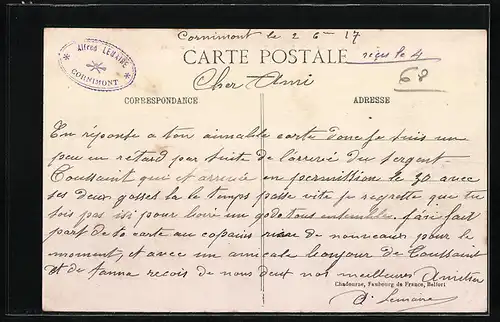 Cornimont le 2 6 - 17
CARTE POSTALE
reçu le 4
Alfred LEMAIRE
CORNIMONT
68
Cher Ami
CORRESPONDANCE
ADRESSE
En réponse a ton aimable carte donc je suis un
peu en retard par suite de l'arrivé du sergent
Toussaint qui et arrivée en permittion le 30 avec
ses deux gosses la le temps passe vite je regrette que tu
sois pas isi pour boire un gode tous ensemble. j'ai fait
part de ta carte au copains rien de nouveaux pour le
moment, et avec un amicale bonjour de Toussaint
et de fanna recois de nous deux nos meilleures Amitier
Chadourne, Faubourg de France, Belfort
A. Lemaire